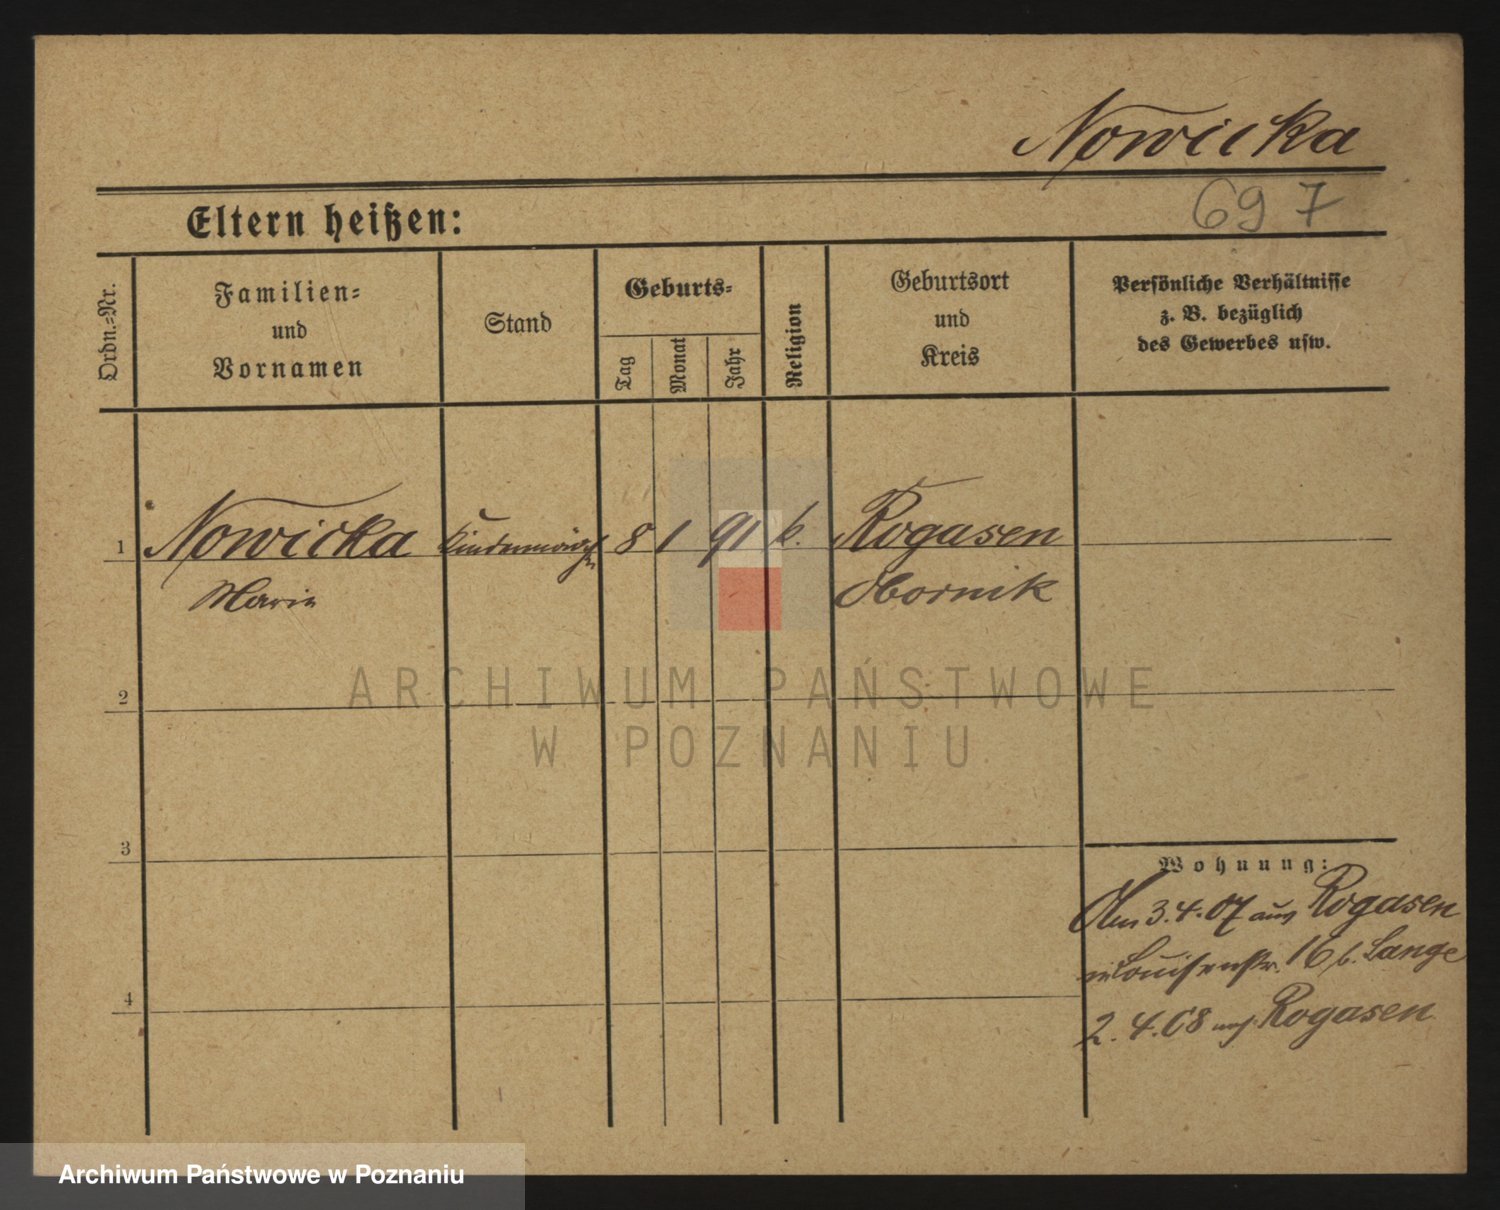 Nowicka
697
Eltern heißen:
Ordn.=Nr.
Familien=
und
Vornamen
Stand
Geburts=
Tag
Monat
Jahr
Religion
Geburtsort
und
Kreis
Persönliche Verhältnisse
z. B. bezüglich
des Gewerbes usw.
1 Nowicka 8 1 91 k. Rogasen
Marie Obornik
2
3
4
Wohnung:
3.4.07 aus Rogasen
in Louisenstr. 16 b. Lange
2.4.08 nach Rogasen
ARCHIWUM PAŃSTWOWE
W POZNANIU
Archiwum Państwowe w Poznaniu